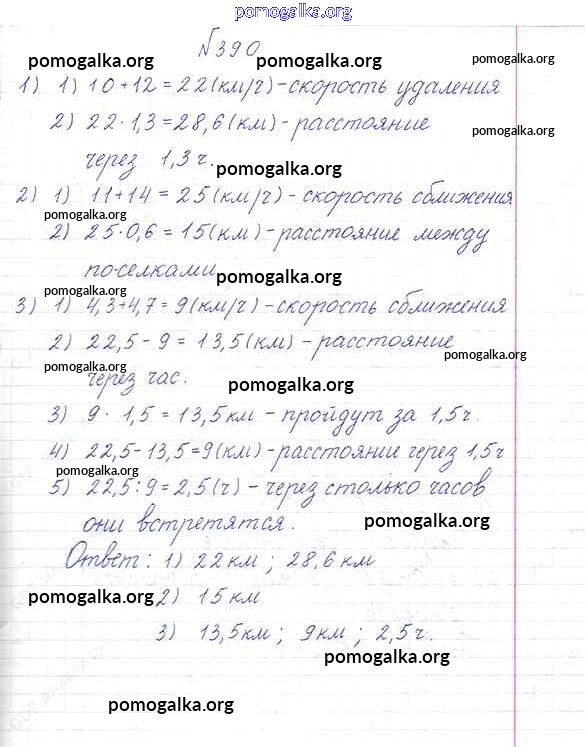 pomogalka.org
№390
pomogalka.org pomogalka.org pomogalka.org
1) 1) 10+12=22(км/ч)-скорость удаления
2) 22·1,3=28,6(км)-расстояние
pomogalka.org
через 1,3ч.
pomogalka.org
2) 1) 11+14=25(км/ч)-скорость сближения
pomogalka.org
2) 25·0,6=15(км)-расстояние между
поселками
pomogalka.org
pomogalka.org
3) 1) 4,3+4,7=9(км/ч)-скорость сближения
2) 22,5-9=13,5(км)-расстояние
pomogalka.org
pomogalka.org
через час.
pomogalka.org
3) 9·1,5=13,5км-пройдут за 1,5ч.
4) 22,5-13,5=9(км)-расстояние через 1,5ч
pomogalka.org
5) 22,5:9=2,5(ч)-через столько часов
они встретятся.
pomogalka.org
Ответ: 1) 22км; 28,6км
pomogalka.org
2) 15км
3) 13,5км; 9км; 2,5ч.
pomogalka.org
pomogalka.org